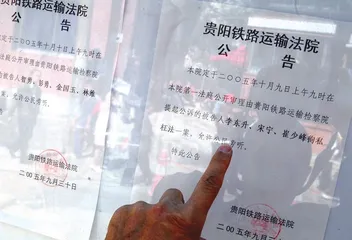 贵阳铁路运输法院
公告
本院定于二〇〇五年十月十日上午九时在
法庭公开审理由贵阳铁路运输检察院
金国玉、林雅
允许公民旁听。
贵阳铁路运输法院
二〇〇五年九月三十日
贵阳铁路运输法院
公 告
本院定于二〇〇五年十月九日上午九时在
本院第一法庭公开审理由贵阳铁路运输检察院
提起公诉的被告人李东升、宋宁、崔少峰徇私
枉法一案,允许公民旁听。
特此公告
贵阳铁路运输法院
二〇〇五年九月